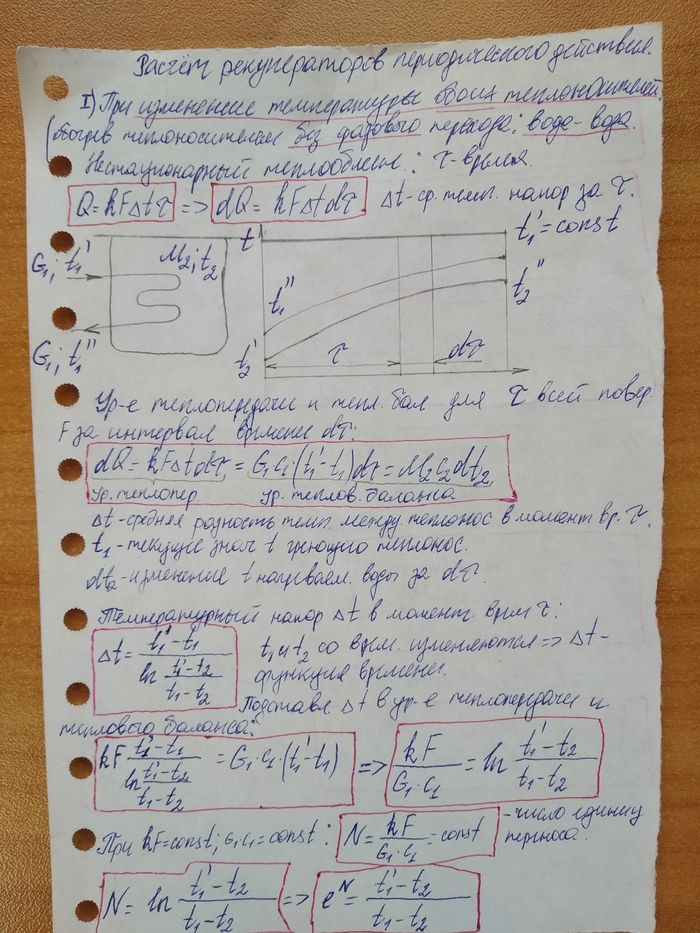 Расчёт рекуператоров периодического действия.
I) При изменение температуры обоих теплоносителей
(обогрев теплоносителем без фазового перехода: вода-вода.
Нестационарный теплообмен: τ-время.
Q=kFΔtτ => dQ=kFΔtdτ Δt-ср. темп. напор за τ.
G₁; t₁' M₂; t₂ t t₁'=const
t₁'' t₂''
G₁; t₁'' t₂' τ dτ
Ур-е теплопередачи и тепл. бал для τ всей повер.
F за интервал времене dτ:
dQ=kFΔtdτ=G₁c₁(t₁'-t₁)dτ=M₂c₂dt₂
Ур. теплопер. ур. теплов. баланса
Δt-средняя разность темп. между теплонос в момент вр. τ.
t₁-текущие знач t греющего теплонос.
dt₂-изменение t нагреваем. воды за dτ.
Температурный напор Δt в момент врем τ:
Δt = (t₁'-t₁)/(ln (t₁'-t₂)/(t₁-t₂)) t₁ и t₂ со врем. изменяются => Δt-
функция времени.
Подставл. Δt в ур-е теплопередачи и
теплового баланса:
kF (t₁'-t₁)/(ln (t₁'-t₂)/(t₁-t₂)) = G₁·c₁·(t₁'-t₁) => kF/(G₁·c₁) = ln (t₁'-t₂)/(t₁-t₂)
При kF=const; G₁c₁=const: N=kF/(G₁·c₁)=const -число единиц
переноса.
N=ln (t₁'-t₂)/(t₁-t₂) => eᴺ=(t₁'-t₂)/(t₁-t₂)